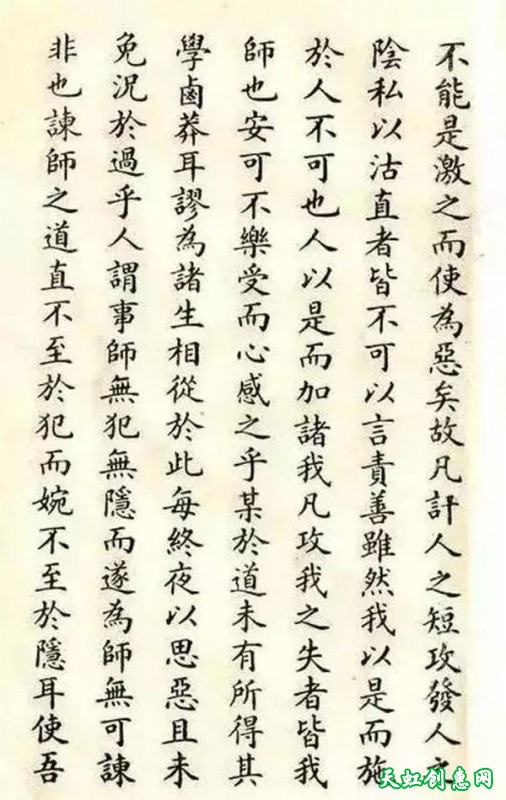 不能是激之而使為惡矣故凡訐人之短攻發人之
陰私以沽直者皆不可以言責善雖然我以是而施
於人不可也人以是而加諸我凡攻我之失者皆我
師也安可不樂受而心感之乎某於道未有所得其
學鹵莽耳謬為諸生相從於此每終夜以思惡且未
免況於過乎人謂事師無犯無隱而遂為師無可諫
非也諫師之道直不至於犯而婉不至於隱耳使吾
天虹创惠网